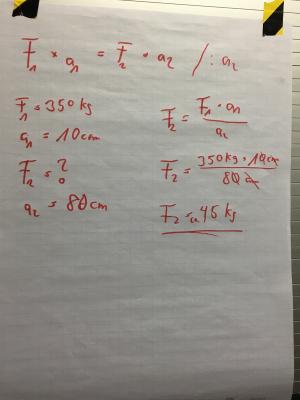 F₁ * a₁ = F₂ * a₂ / : a₂
F₁ = 350 kg
a₁ = 10cm
F₂ = ?
a₂ = 80 cm
F₂ = F₁ · a₁ / a₂
F₂ = 350 kg · 10 cm / 80 cm
F₂ = 45 kg